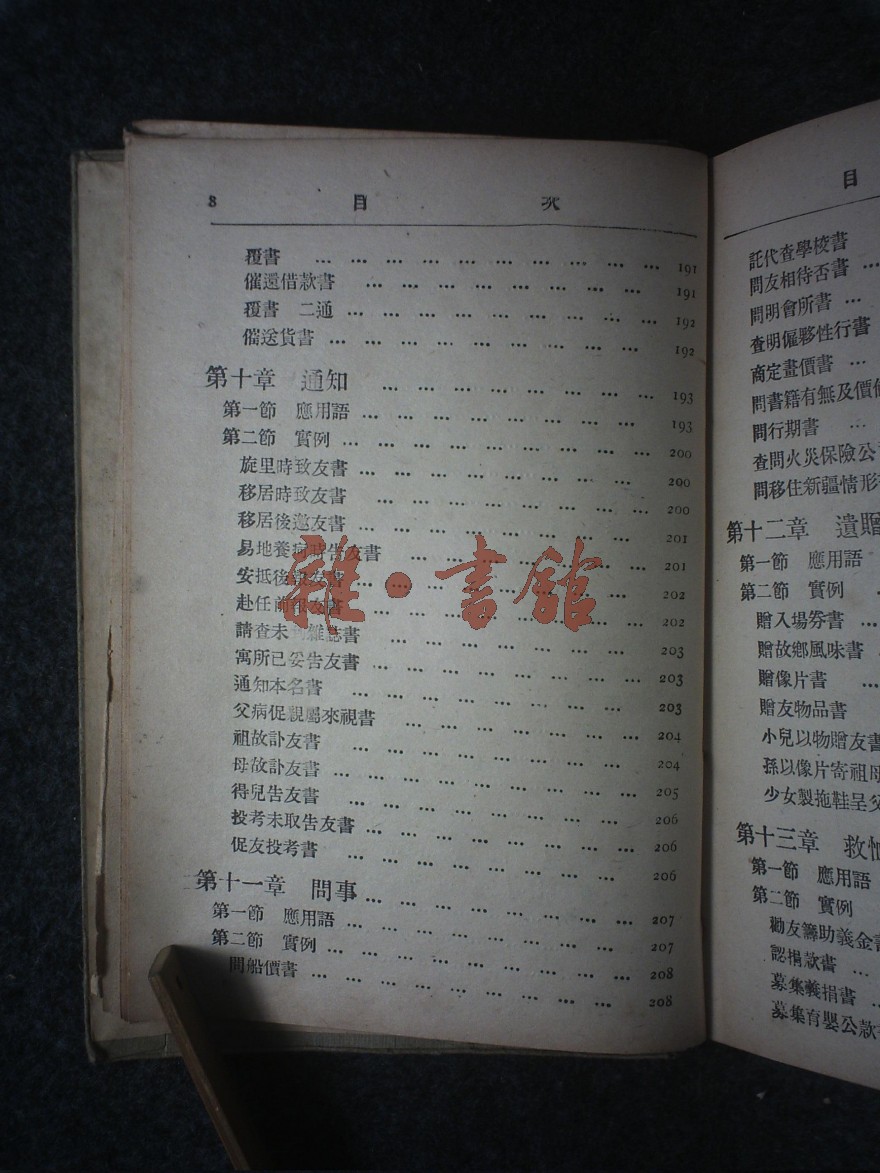 8 目 次
覆書 ... 191
催還借款書 ... 191
覆書 二通 ... 192
催送貨書 ... 192
第十章 通知 ... 193
第一節 應用語 ... 193
第二節 實例 ... 200
旋里時致友書 ... 200
移居時致友書 ... 200
移居後邀友書 ... 201
易地養病時告友書 ... 201
安抵後友書 ... 202
赴任前友書 ... 202
請查未雜誌書 ... 203
寓所已妥告友書 ... 203
通知本名書 ... 203
父病促親屬來視書 ... 204
祖故訃友書 ... 204
母故訃友書 ... 205
得兒告友書 ... 206
投考未取告友書 ... 206
促友投考書 ... 206
第十一章 問事 ... 207
第一節 應用語 ... 207
第二節 實例 ... 208
問船價書 ... 208
雜·書館
目
託代查學校書
問友相待否書 ...
問明會所書 ...
查明僱夥性行書
商定畫價書 ...
問書籍有無及價
問行期書 ...
查問火災保險公
問移住新疆情形
第十二章 遺贈
第一節 應用語
第二節 實例
贈入場券書
贈故鄉風味書
贈像片書 ...
贈友物品書
小兒以物贈友書
孫以像片寄祖母
少女製拖鞋呈父
第十三章 救恤
第一節 應用語
第二節 實例
勸友籌助義金書
認捐款書 ...
募集義捐書 ...
募集育嬰公款